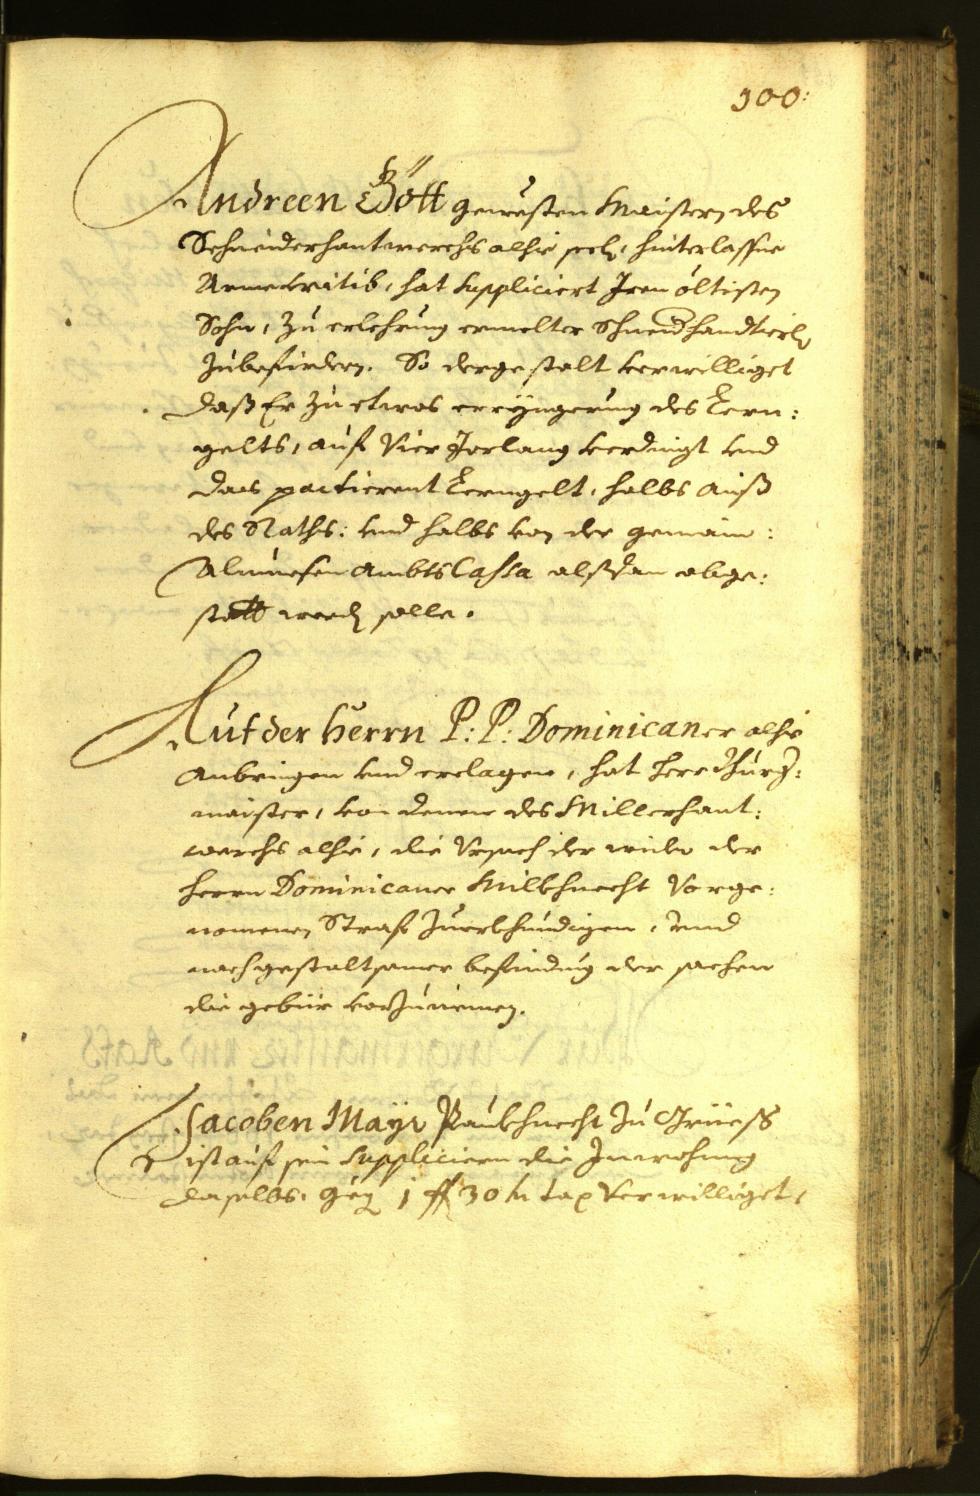 100:
Andreen Gött gewesten Maisters des
Schneiderhantwerchs alhie seel: hinterlassne
Arme Wittib, hat suppliciert Iren öltisten
Sohn, zu erlehrung ermelter Schneid handtierh
zubefirdern. So dergestalt verwilliget
daß Er zu etwas erryngerung des Lern:
gelts, auf Vier Jarlang verdingt vnd
das pactierent Lerngelt, halbs auß
des Raths: vnd halbs von der gemain:
Almuesen Ambts Cassa alßdan abge:
statt werd solle.
Auf der Herrn P: P: Dominicaner alhie
Anbringen vnd erclagen, hat Herr Burg:
maister, von denen des Millerhant:
werchs alhie, die Vrsach der wider der
Herrn Dominicaner Millkhnecht Vorge:
nomenen Straf zuerkhundigen, vnnd
nach gestaltsamer befindung der sachen
die gebür vorzunemen.
Jacoben Mayr Paukhnecht zu Grieß
ist auf sein Supplicieren die Inwohnung
daselbs, geg 1 fl 30 kr tax Verwilliget,